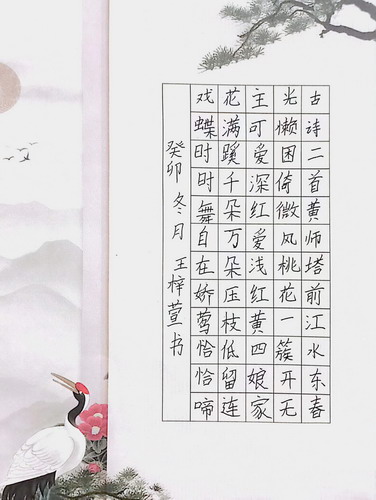 古诗二首黄师塔前江水东春
光懒困倚微风桃花一簇开无
主可爱深红爱浅红黄四娘家
花满蹊千朵万朵压枝低留连
戏蝶时时舞自在娇莺恰恰啼
癸卯 冬月 王梓萱书